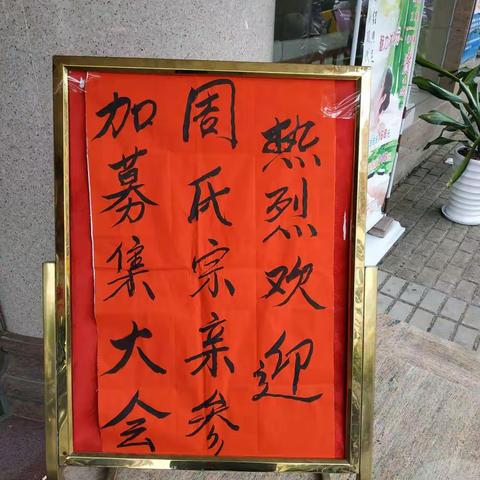 熱烈欢迎
周氏宗亲参
加募集大会